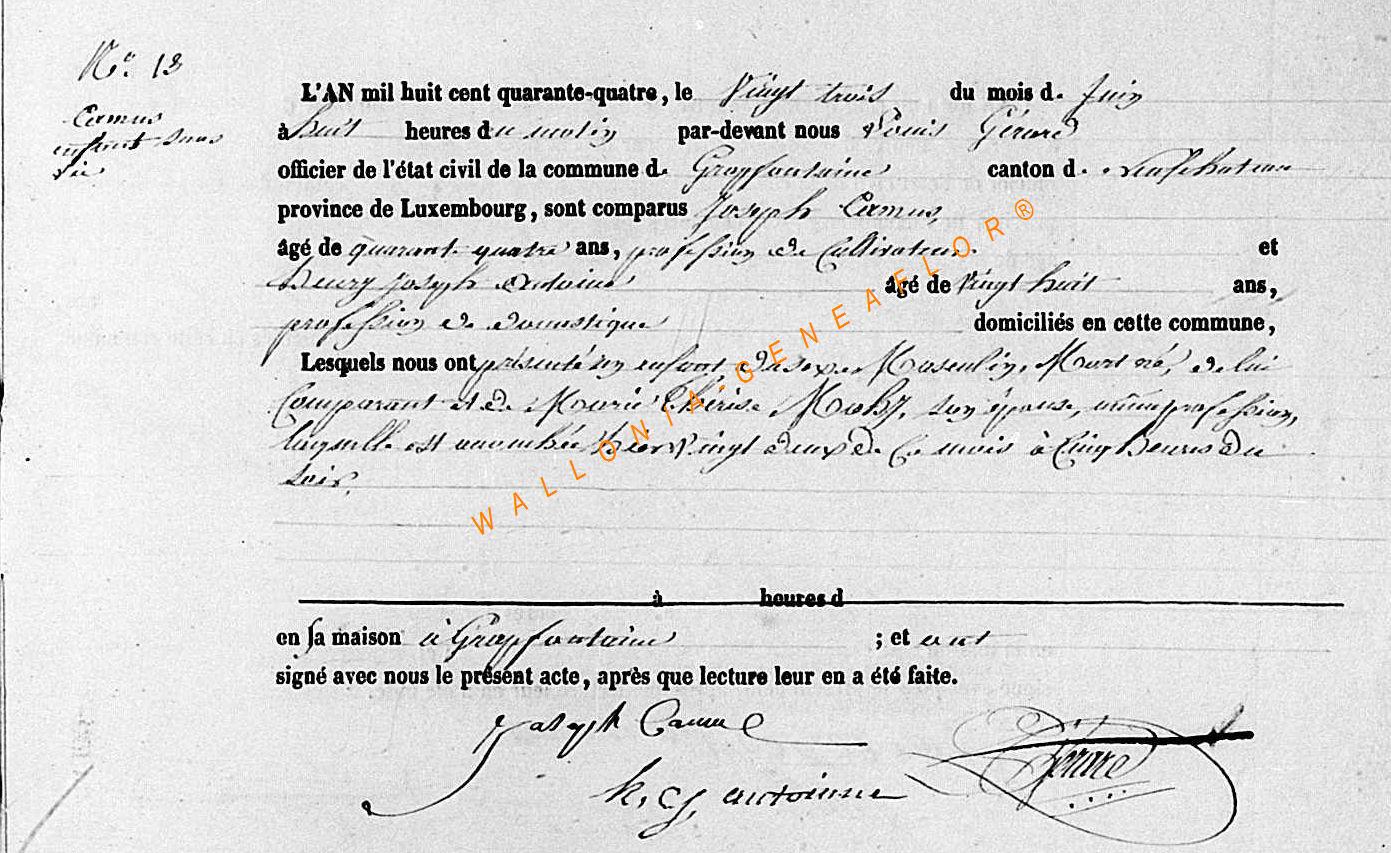 N.° 13
Camus
enfant sans
vie
L'AN mil huit cent quarante-quatre, le Vingt trois du mois d. Juin
à huit heures du matin par-devant nous Louis Gérard
officier de l'état civil de la commune d. Grapfontaine canton d. Neufchateau
province de Luxembourg, sont comparus Joseph Camus,
âgé de quarante quatre ans, profession de Cultivateur. et
henry Joseph Antoine âgé de Vingt huit ans,
profession de domestique domiciliés en cette commune,
Lesquels nous ont présenté un enfant du sexe Masculin, Mort né, de lui
Comparant et de Marie Thérise son épouse, même profession,
laquelle est accouchée hier Vingt deux de Ce mois à Cinq heures du
soir.
à heures d
en sa maison à Grapfontaine ; et ont
signé avec nous le présent acte, après que lecture leur en a été faite.
Joseph Camus
h. j. antoinne
Gérard
WALLONIA-GENEAFLOR®